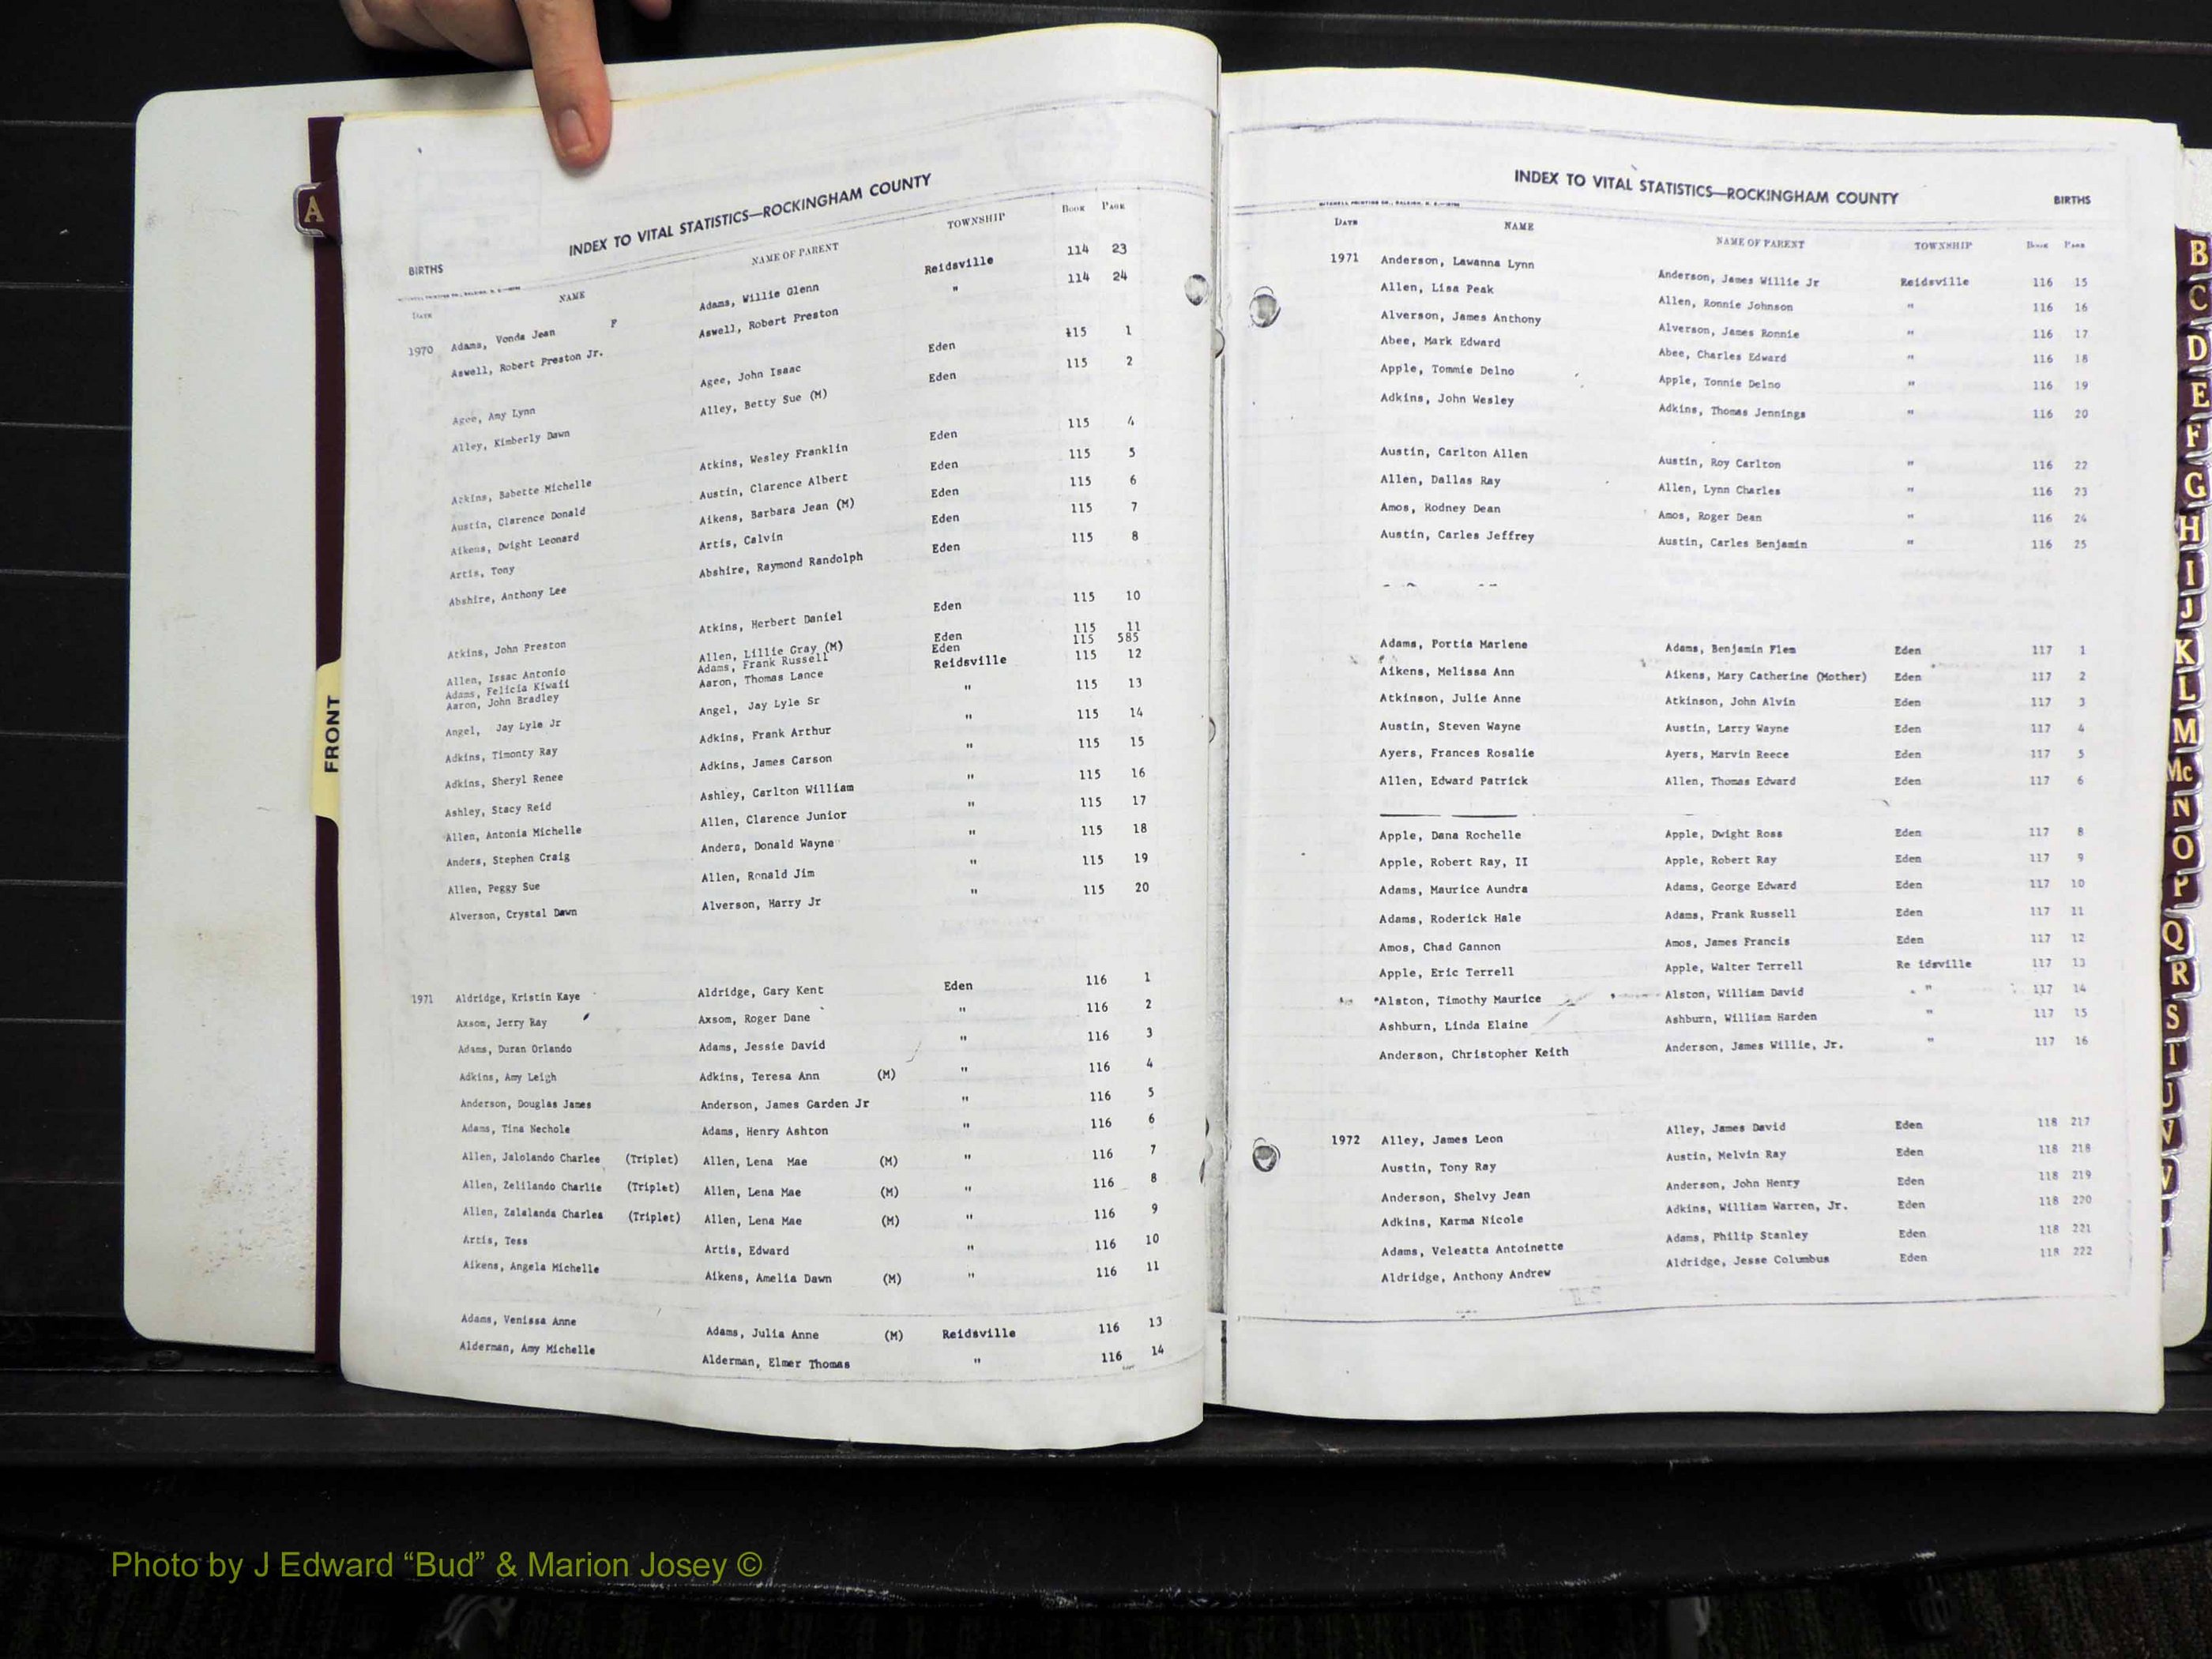 A
FRONT
BIRTHS INDEX TO VITAL STATISTICS—ROCKINGHAM COUNTY
DATE NAME NAME OF PARENT TOWNSHIP BOOK PAGE
1970 Adams, Vonda Jean F Adams, Willie Glenn Reidsville 114 23
Aswell, Robert Preston Jr. Aswell, Robert Preston " 114 24
Agee, Amy Lynn Agee, John Isaac Eden 115 1
Alley, Kimberly Dawn Alley, Betty Sue (M) Eden 115 2
Atkins, Babette Michelle Atkins, Wesley Franklin Eden 115 4
Austin, Clarence Donald Austin, Clarence Albert Eden 115 5
Aikens, Dwight Leonard Aikens, Barbara Jean (M) Eden 115 6
Artis, Tony Artis, Calvin Eden 115 7
Abshire, Anthony Lee Abshire, Raymond Randolph Eden 115 8
Atkins, John Preston Atkins, Herbert Daniel Eden 115 10
Allen, Issac Antonio Allen, Lillie Gray (M) Eden 115 11
Adams, Felicia Kiwaii Adams, Frank Russell Eden 115 585
Aaron, John Bradley Aaron, Thomas Lance Reidsville 115 12
Angel, Jay Lyle Jr Angel, Jay Lyle Sr " 115 13
Adkins, Timonty Ray Adkins, Frank Arthur " 115 14
Adkins, Sheryl Renee Adkins, James Carson " 115 15
Ashley, Stacy Reid Ashley, Carlton William " 115 16
Allen, Antonia Michelle Allen, Clarence Junior " 115 17
Anders, Stephen Craig Anders, Donald Wayne " 115 18
Allen, Peggy Sue Allen, Ronald Jim " 115 19
Alverson, Crystal Dawn Alverson, Harry Jr " 115 20
1971 Aldridge, Kristin Kaye Aldridge, Gary Kent Eden 116 1
Axsom, Jerry Ray Axsom, Roger Dane " 116 2
Adams, Duran Orlando Adams, Jessie David " 116 3
Adkins, Amy Leigh Adkins, Teresa Ann (M) " 116 4
Anderson, Douglas James Anderson, James Garden Jr " 116 5
Adams, Tina Nechole Adams, Henry Ashton " 116 6
Allen, Jalolando Charlee (Triplet) Allen, Lena Mae (M) " 116 7
Allen, Zelilando Charlie (Triplet) Allen, Lena Mae (M) " 116 8
Allen, Zalalanda Charles (Triplet) Allen, Lena Mae (M) " 116 9
Artis, Tess Artis, Edward " 116 10
Aikens, Angela Michelle Aikens, Amelia Dawn (M) " 116 11
Adams, Venissa Anne Adams, Julia Anne (M) Reidsville 116 13
Alderman, Amy Michelle Alderman, Elmer Thomas " 116 14
INDEX TO VITAL STATISTICS—ROCKINGHAM COUNTY BIRTHS
DATE NAME NAME OF PARENT TOWNSHIP BOOK PAGE
1971 Anderson, Lawanna Lynn Anderson, James Willie Jr Reidsville 116 15
Allen, Lisa Peak Allen, Ronnie Johnson " 116 16
Alverson, James Anthony Alverson, James Ronnie " 116 17
Abee, Mark Edward Abee, Charles Edward " 116 18
Apple, Tommie Delno Apple, Tonnie Delno " 116 19
Adkins, John Wesley Adkins, Thomas Jennings " 116 20
Austin, Carlton Allen Austin, Roy Carlton " 116 22
Allen, Dallas Ray Allen, Lynn Charles " 116 23
Amos, Rodney Dean Amos, Roger Dean " 116 24
Austin, Carles Jeffrey Austin, Carles Benjamin " 116 25
Adams, Portia Marlene Adams, Benjamin Flem Eden 117 1
Aikens, Melissa Ann Aikens, Mary Catherine (Mother) Eden 117 2
Atkinson, Julie Anne Atkinson, John Alvin Eden 117 3
Austin, Steven Wayne Austin, Larry Wayne Eden 117 4
Ayers, Frances Rosalie Ayers, Marvin Reece Eden 117 5
Allen, Edward Patrick Allen, Thomas Edward Eden 117 6
Apple, Dana Rochelle Apple, Dwight Ross Eden 117 8
Apple, Robert Ray, II Apple, Robert Ray Eden 117 9
Adams, Maurice Aundra Adams, George Edward Eden 117 10
Adams, Roderick Hale Adams, Frank Russell Eden 117 11
Amos, Chad Gannon Amos, James Francis Eden 117 12
Apple, Eric Terrell Apple, Walter Terrell Re idsville 117 13
Alston, Timothy Maurice Alston, William David " 117 14
Ashburn, Linda Elaine Ashburn, William Harden " 117 15
Anderson, Christopher Keith Anderson, James Willie, Jr. " 117 16
1972 Alley, James Leon Alley, James David Eden 118 217
Austin, Tony Ray Austin, Melvin Ray Eden 118 218
Anderson, Shelvy Jean Anderson, John Henry Eden 118 219
Adkins, Karma Nicole Adkins, William Warren, Jr. Eden 118 220
Adams, Veleatta Antoinette Adams, Philip Stanley Eden 118 221
Aldridge, Anthony Andrew Aldridge, Jesse Columbus Eden 118 222
B
C
D
E
F
G
H
I
J
K
L
M
Mc
N
O
P
Q
R
S
T
U
V
W
Photo by J Edward “Bud” & Marion Josey ©